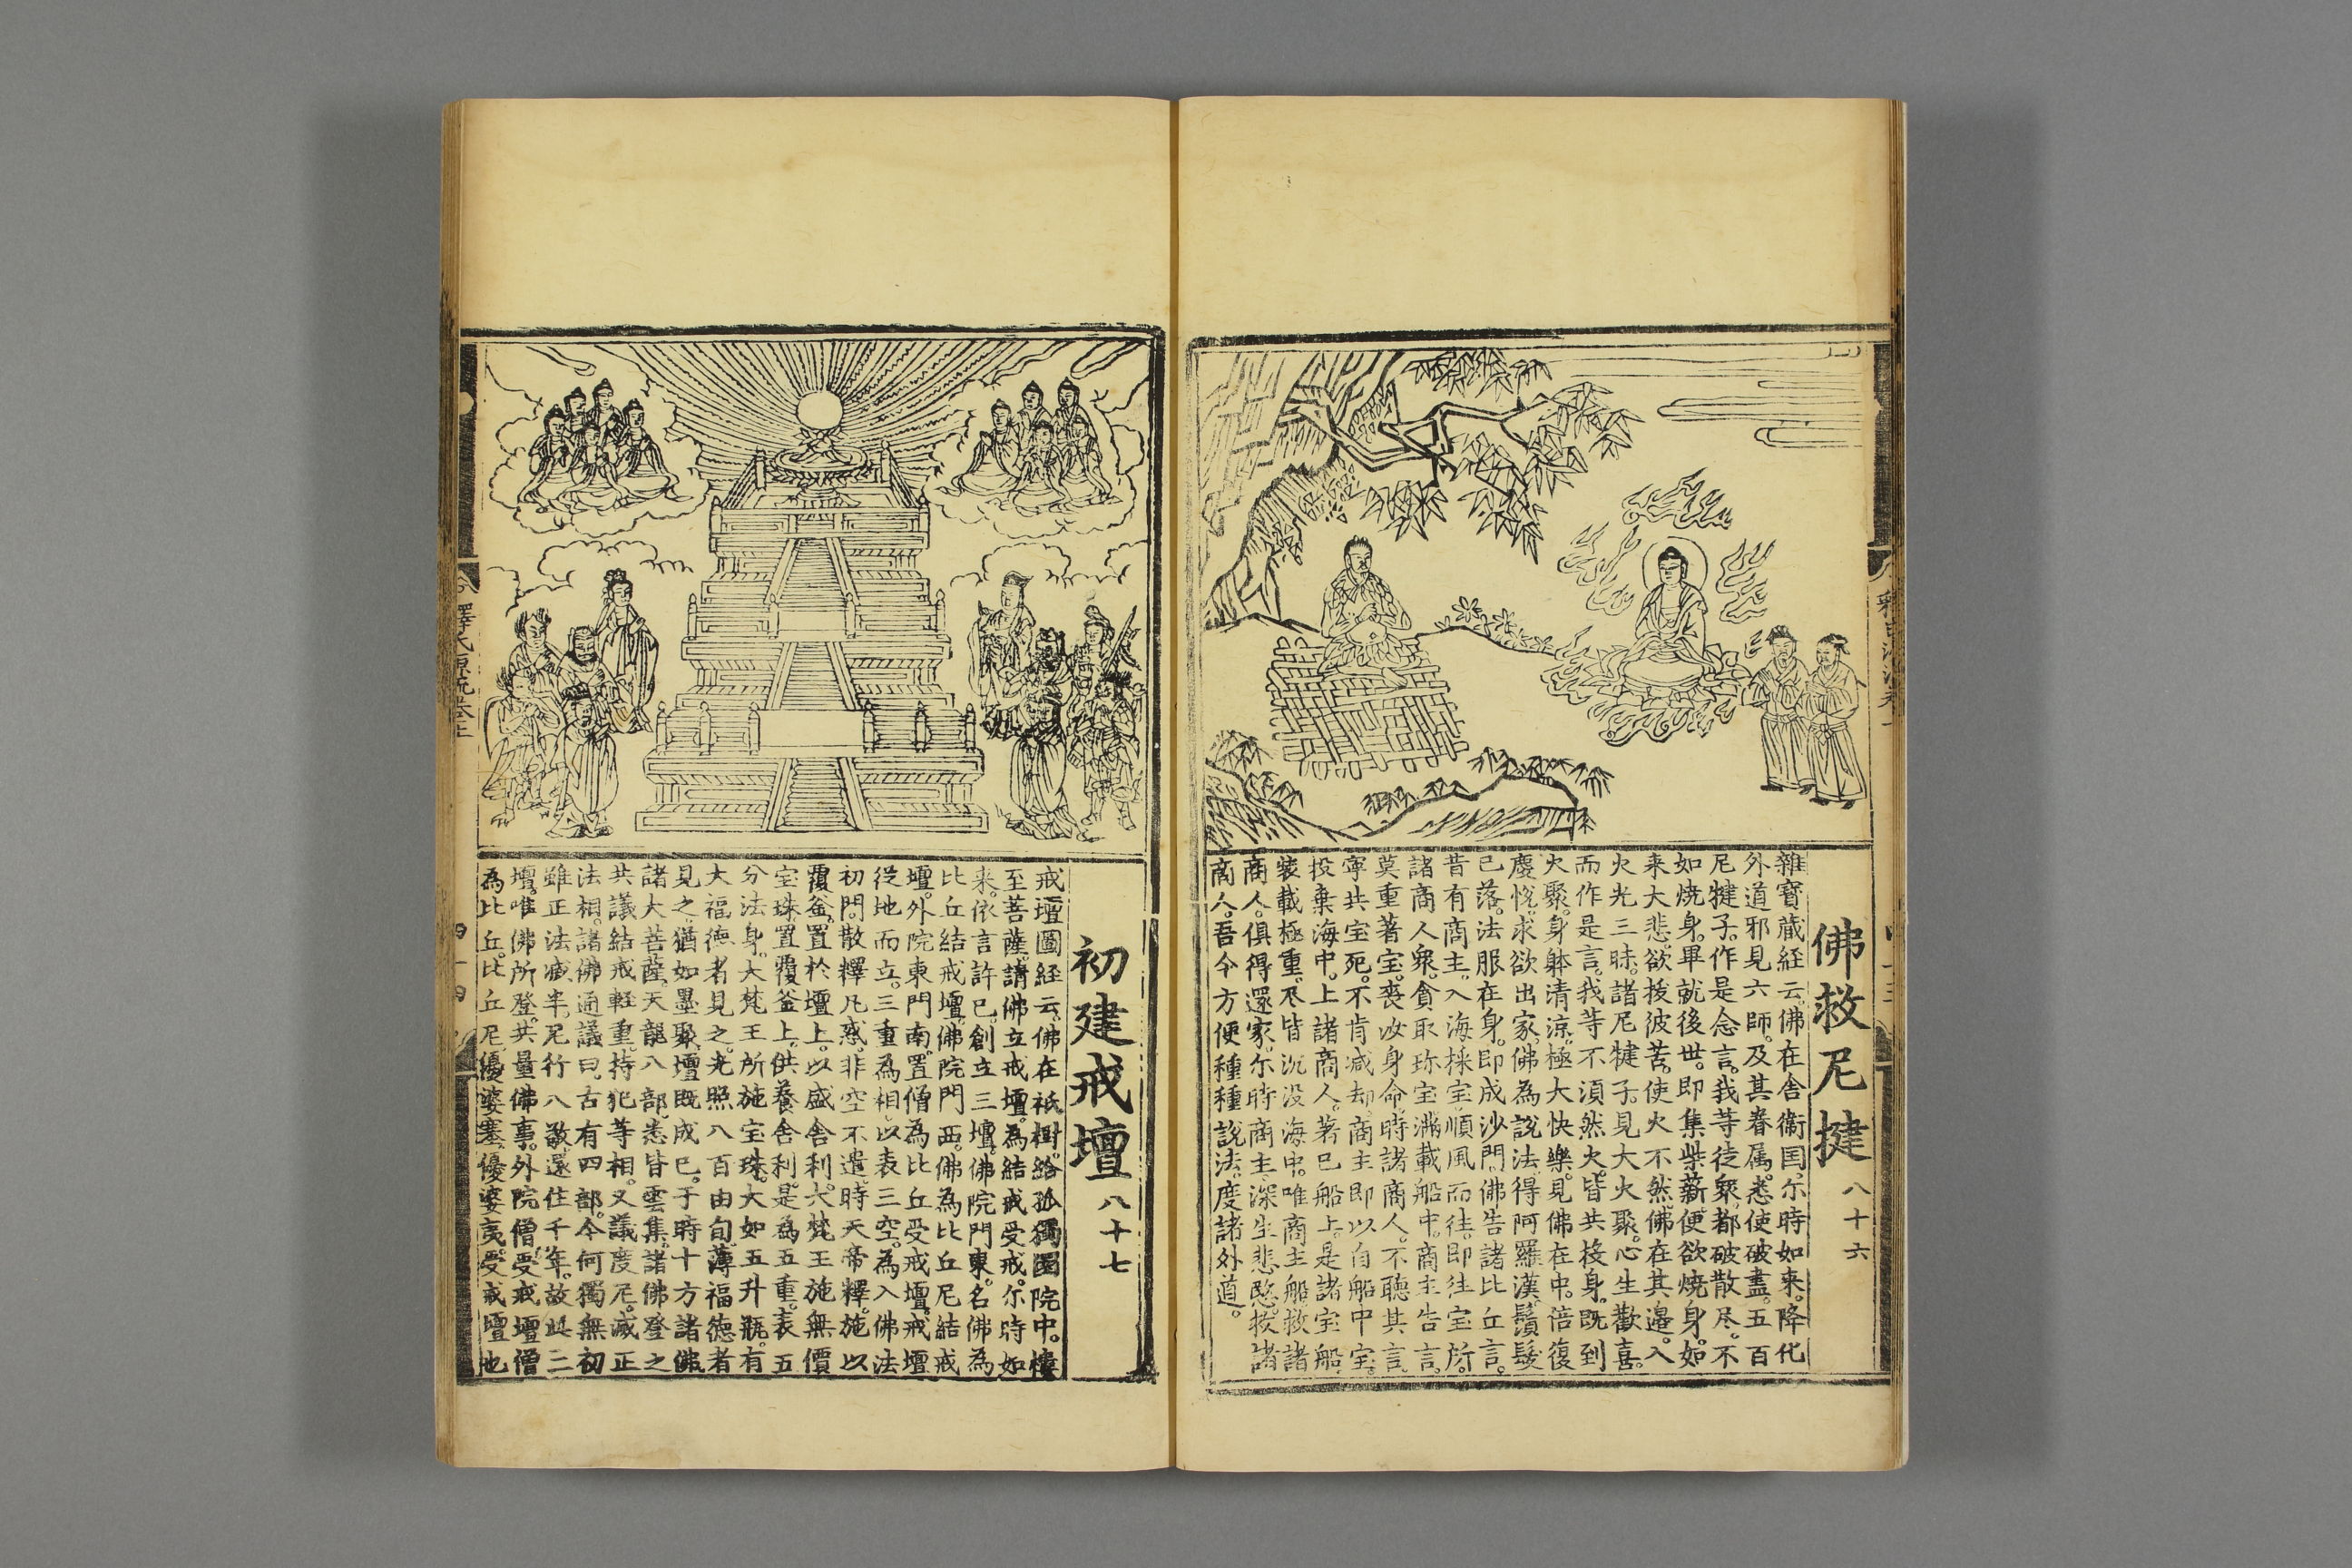 佛救尼揵 八十六
雜寶蔵経云。佛在舎衛国。尓時如来。降化
外道邪見六師。及其眷属。悉使破盡。五百
尼犍子。作是念言。我等徒衆。都破散尽。不
如焼身。早就後世。即集柴薪。便欲焼身。如
来大悲。欲拔彼苦。使火不然。佛在其邉。入
火光三昧。諸尼犍子。見大火聚。心生歡喜。
而作是言。我等不湏然火。皆共投身。既到
火聚。身躰清涼。極大快樂。見佛在中。倍復
慶悦。求欲出家。佛為説法。得阿羅漢。鬚髮
已落。法服在身。即成沙門。佛告諸比丘言。
昔有商主。入海採宝。順風而徃。即徃宝所。
諸商人衆。貪取珎宝。滿載船中。商主告言。
莫重著宝。喪汝身命。時諸商人。不聽其言。
寜共宝死。不肯減却。商主即以自船中宝。
投棄海中。上諸商人。著已船上。是諸宝船
裝載極重。尽皆沉没海中。唯商主船。救諸
商人。俱得還家。尓時商主。深生悲愍。拔諸
商人。吾今方便種種説法。度諸外道。
初建戒壇 八十七
戒壇圖経云。佛在祇樹給孤獨園院中。樓
至菩薩。請佛立戒壇。為結戒受戒。尓時如
来。依言許已。創立三壇。佛院門東。名佛為
比丘結戒壇。佛院門西。佛為比丘尼結戒
壇。外院東門南。置僧為比丘受戒壇。戒壇
従地而立。三重為相。以表三空。為入佛法
初門。散釋凡惑。非空不遣。時天帝釋。施以
覆釜。置於壇上。以盛舎利。大梵王施無價
宝珠。置覆釜上。供養舎利。是為五重。表五
分法身。大梵王所施宝珠。大如五升瓶。有
大福徳者見之。光照八百由旬。薄福徳者
見之。猶如墨聚。壇既成已。于時十方諸佛
諸大菩薩。天龍八部。悉皆雲集。諸佛登之
共議結戒軽重。持犯等相。又議度尼。滅正
法相。諸佛通議曰。古有四部。今何獨無。初
雖正法滅半。尼行八敬。還住千年。故此二
壇。唯佛所登。共量佛事。外院僧受戒壇僧
為比丘。比丘尼。優婆塞。優婆夷。受戒壇也
釋氏源流卷上
四十四